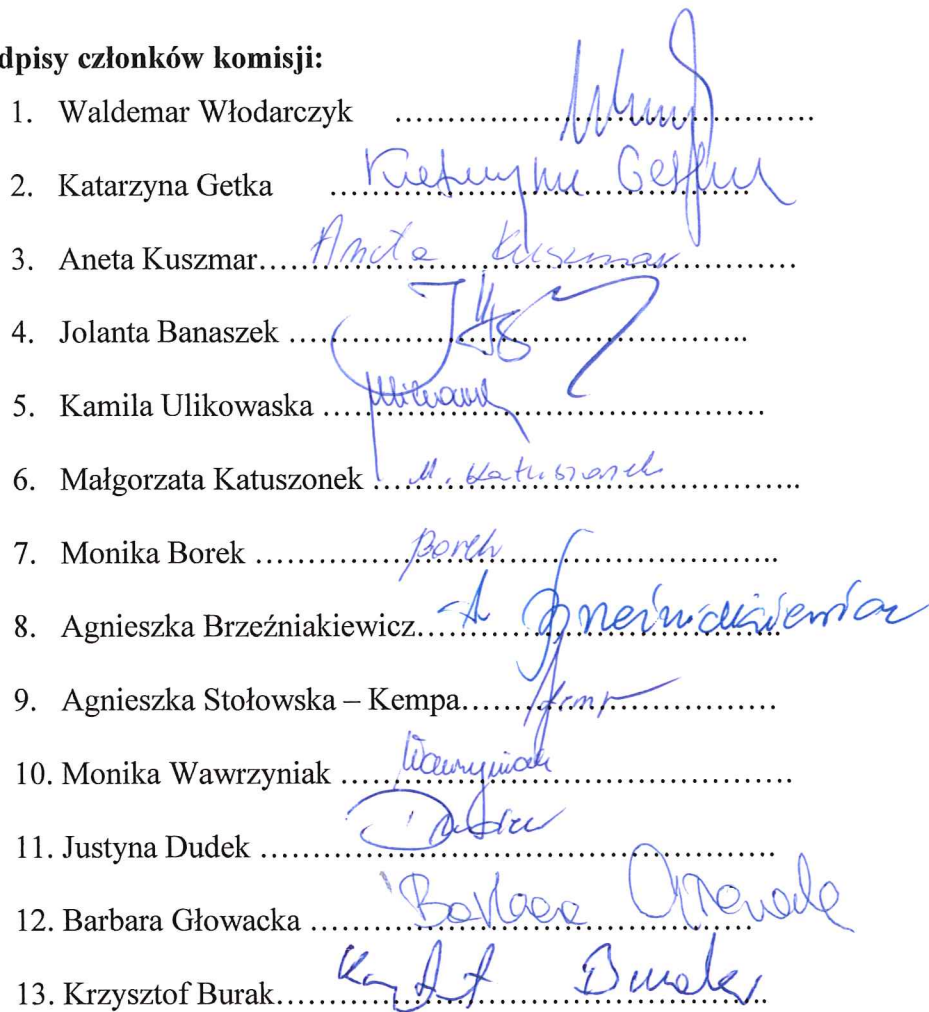 dpisy członków komisji:
1. Waldemar Włodarczyk ……………………………………
2. Katarzyna Getka …………………………………… Katarzyna Getka
3. Aneta Kuszmar…………………………………… Aneta Kuszmar
4. Jolanta Banaszek ……………………………………
5. Kamila Ulikowaska ……………………………………
6. Małgorzata Katuszonek …………………………………… M. Katuszonek
7. Monika Borek …………………………………… Borek
8. Agnieszka Brzeźniakiewicz…………………………………… A Brzeźniakiewicz
9. Agnieszka Stołowska – Kempa…………………………
10. Monika Wawrzyniak …………………………………… Wawrzyniak
11. Justyna Dudek …………………………………… Dudek
12. Barbara Głowacka …………………………………… Barbara
13. Krzysztof Burak…………………………………… Burak